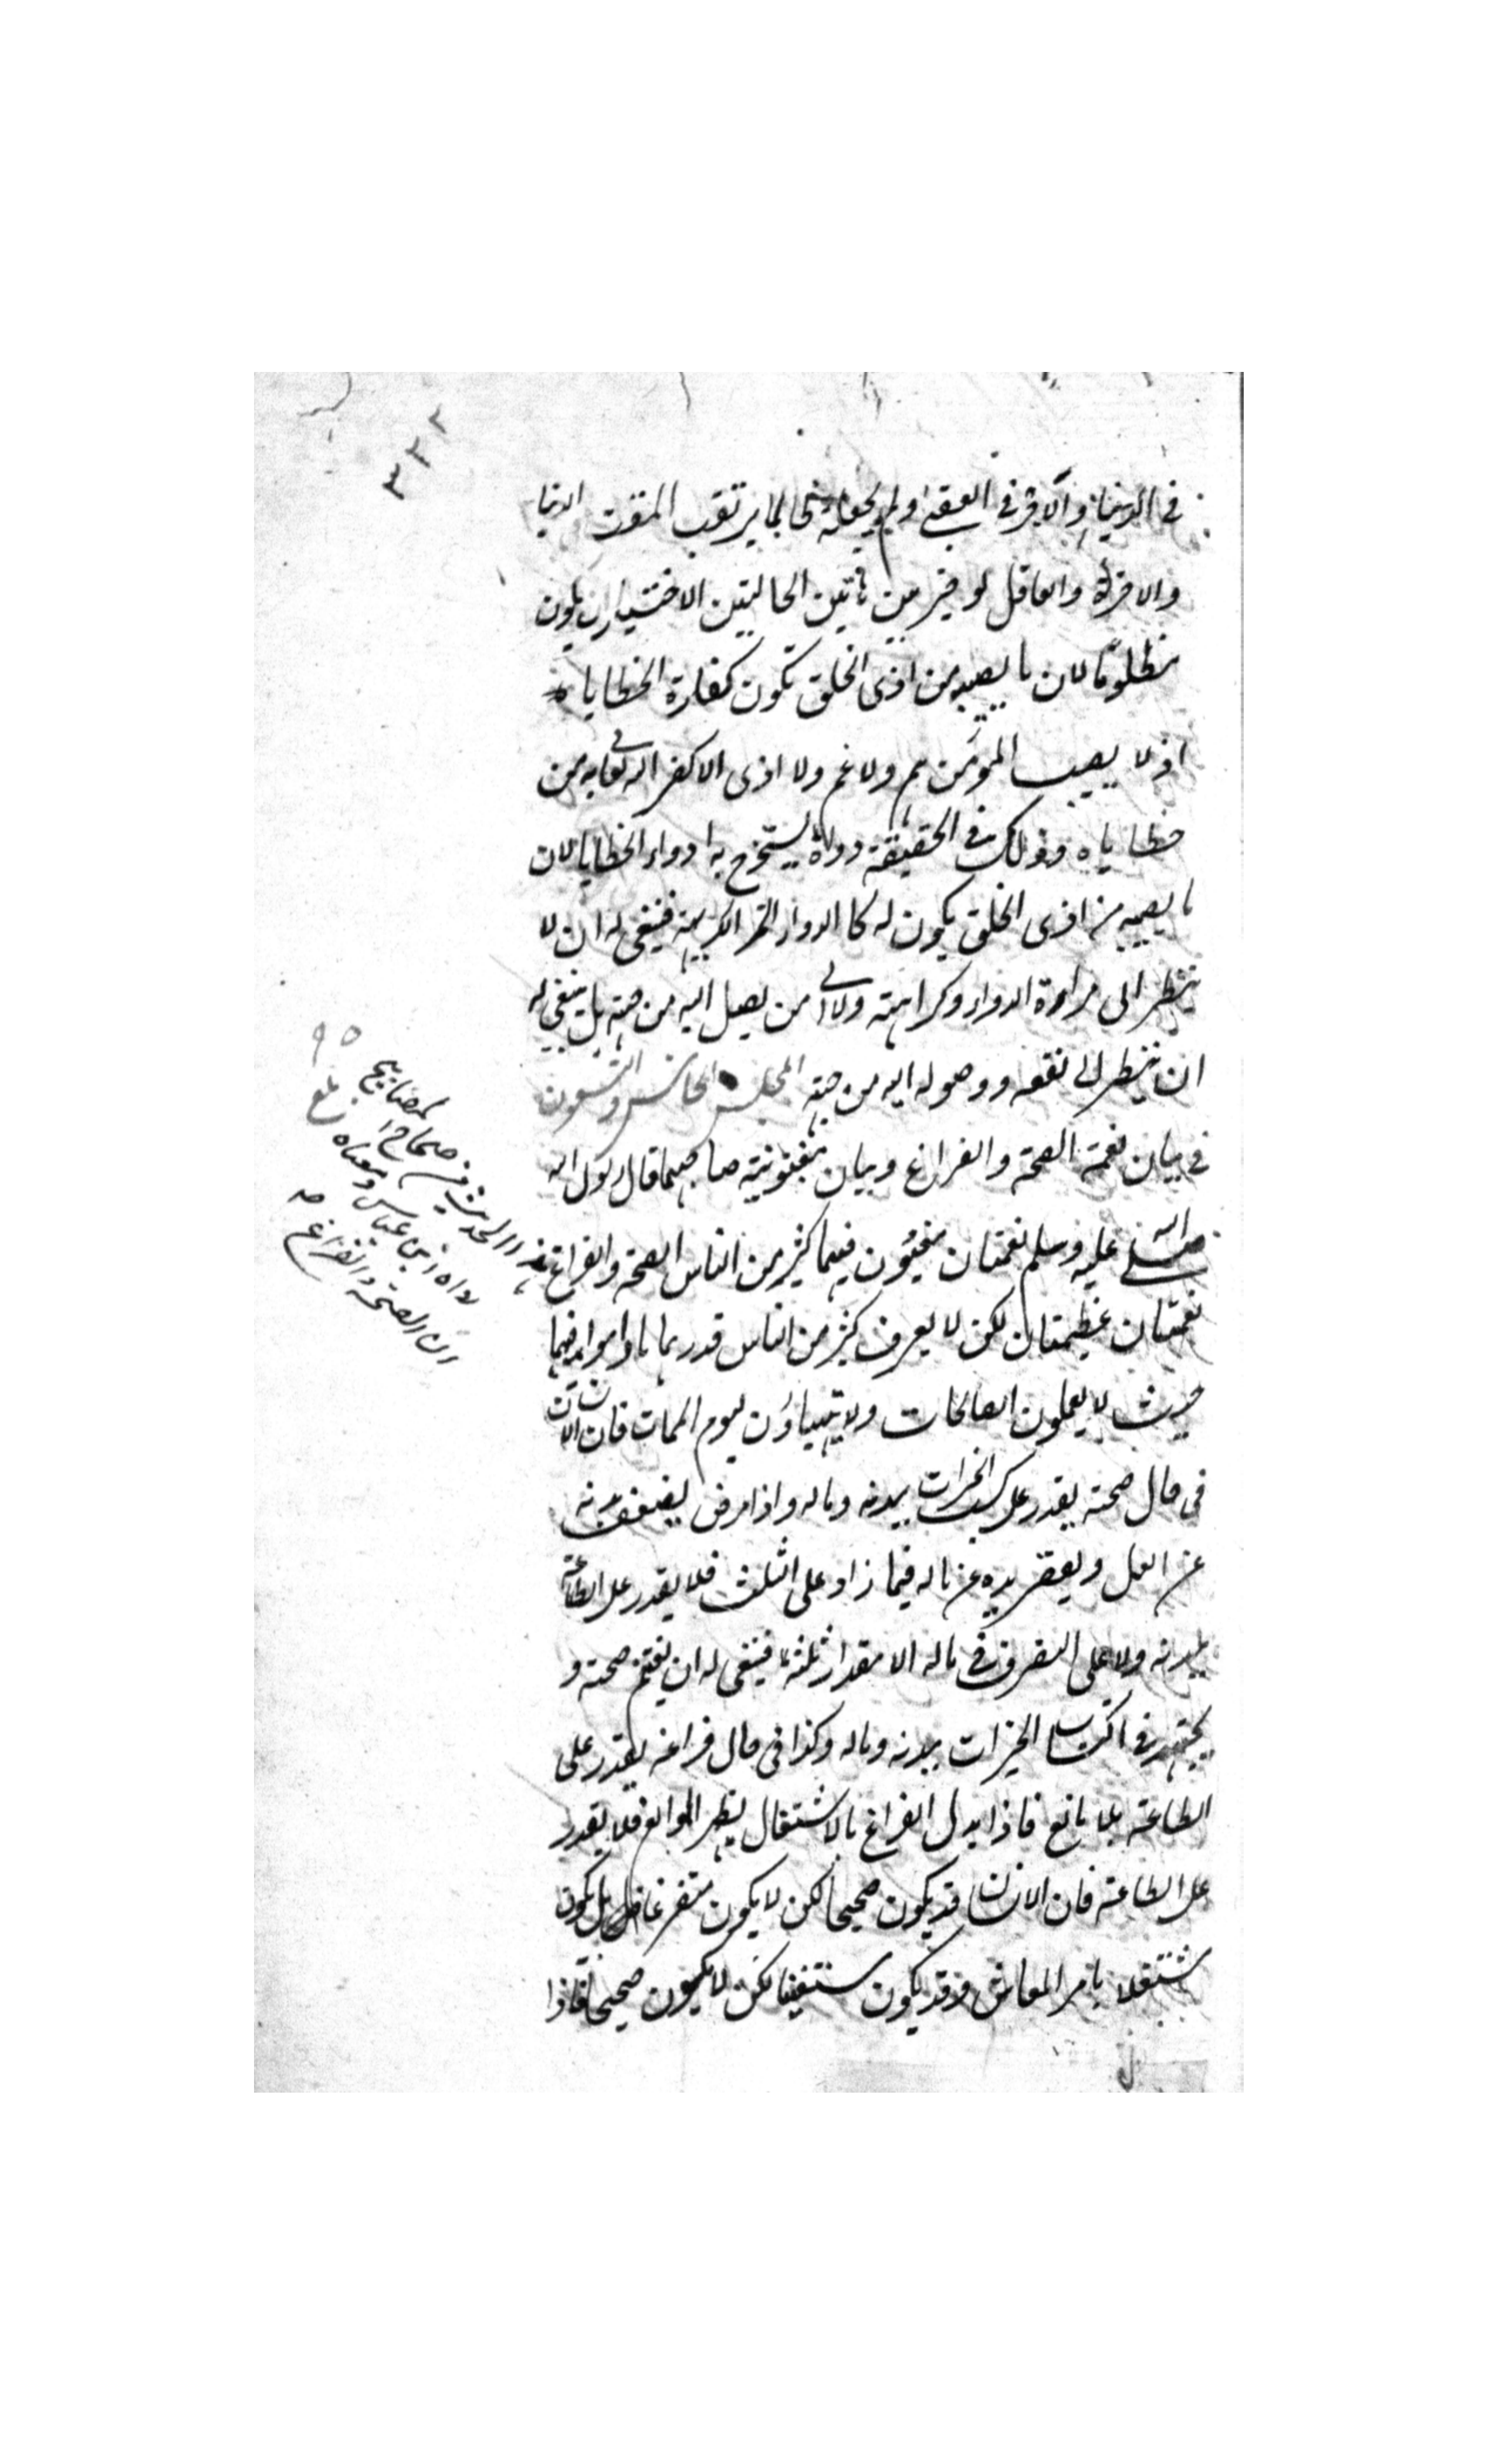 ٣٣٢
في الدنيا والآخرة في العقبى ولم يجعله لما يترقب المضرة الدنيا
والاخرة والعاقل لو خير بين هاتين الحالتين الاختيار ان يكون
مظلوما لان ما يصيبه من اذى الخلق تكون كفارة الخطاياه
اذ لا يصيب المؤمن هم ولا غم ولا اذى الا كفر الله تعالى به من
خطاياه وذلك في الحقيقة دواء يستخرج به ادواء الخطايا لان
ما يصيبه من اذى الخلق يكون له كالدواء المر الكريه فينبغي له ان لا
ينظر الى مرارة الدواء وكراهته ولا الى من يصل اليه من جهته بل ينبغي له
ان ينظر الى نفعه ووصوله اليه من جهته المجلس الخامس والتسعون
في بيان نعمة الصحة والفراغ وبيان مغبونية صاحبهما قال رسول الله
صلى الله عليه وسلم نعمتان مغبون فيهما كثير من الناس الصحة والفراغ
نعمتان عظيمتان لكن لا يعرف كثير من الناس قدرهما ما داموا فيهما
حيث لا يعملون الصالحات ولا يتهيأون ليوم الممات فان الانسان
في حال صحته يقدر على كسب الخيرات ببدنه وماله واذا مرض يضعف بدنه
عن العمل ويقصر يده عن ماله فيما زاد على الثلث فلا يقدر على الطاعة
ببدنه ولا على التصرف في ماله الا مقدار ثلثه فينبغي له ان يغتنم صحته و
يجتهد في اكتساب الخيرات ببدنه وماله وكذا في حال فراغه يقدر على
الطاعة بلا مانع فاذا بدل الفراغ بالاشتغال يظهر الموانع فلا يقدر
على الطاعة فان الانسان قد يكون صحيحا لكن لا يكون متفرغا بل يكون
مشتغلا بامر المعاش وقد يكون مستغنيا لكن لا يكون صحيحا فاذا
٩٥
بلغ
هذا الحديث من صحاح المصابيح
رواه ابن عباس ومعناه
ان الصحة والفراغ صح